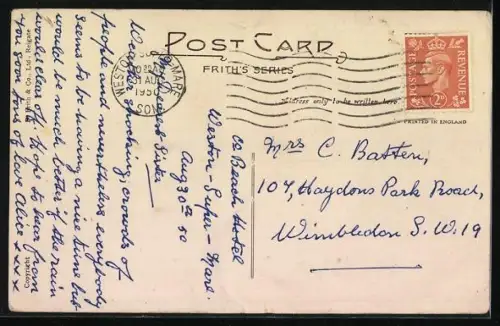 POST CARD
FRITH'S SERIES
Address only to be written here
PRINTED IN ENGLAND
POSTAGE
REVENUE
2D
WESTON-SUPER-MARE
AUG
1950
SOM
Beach Hotel
Weston-Super-Mare.
Aug 30th 50
My Dearest Sister
Weather shocking, crowds of
people and nevertheless everybody
seems to be having a nice time but
would be much better if the rain
would clear th. Hope to hear from
you soon tons of love Alice xxx
Mrs C. Batten,
107, Haydons Park Road,
Wimbledon S.W.19
Copyright